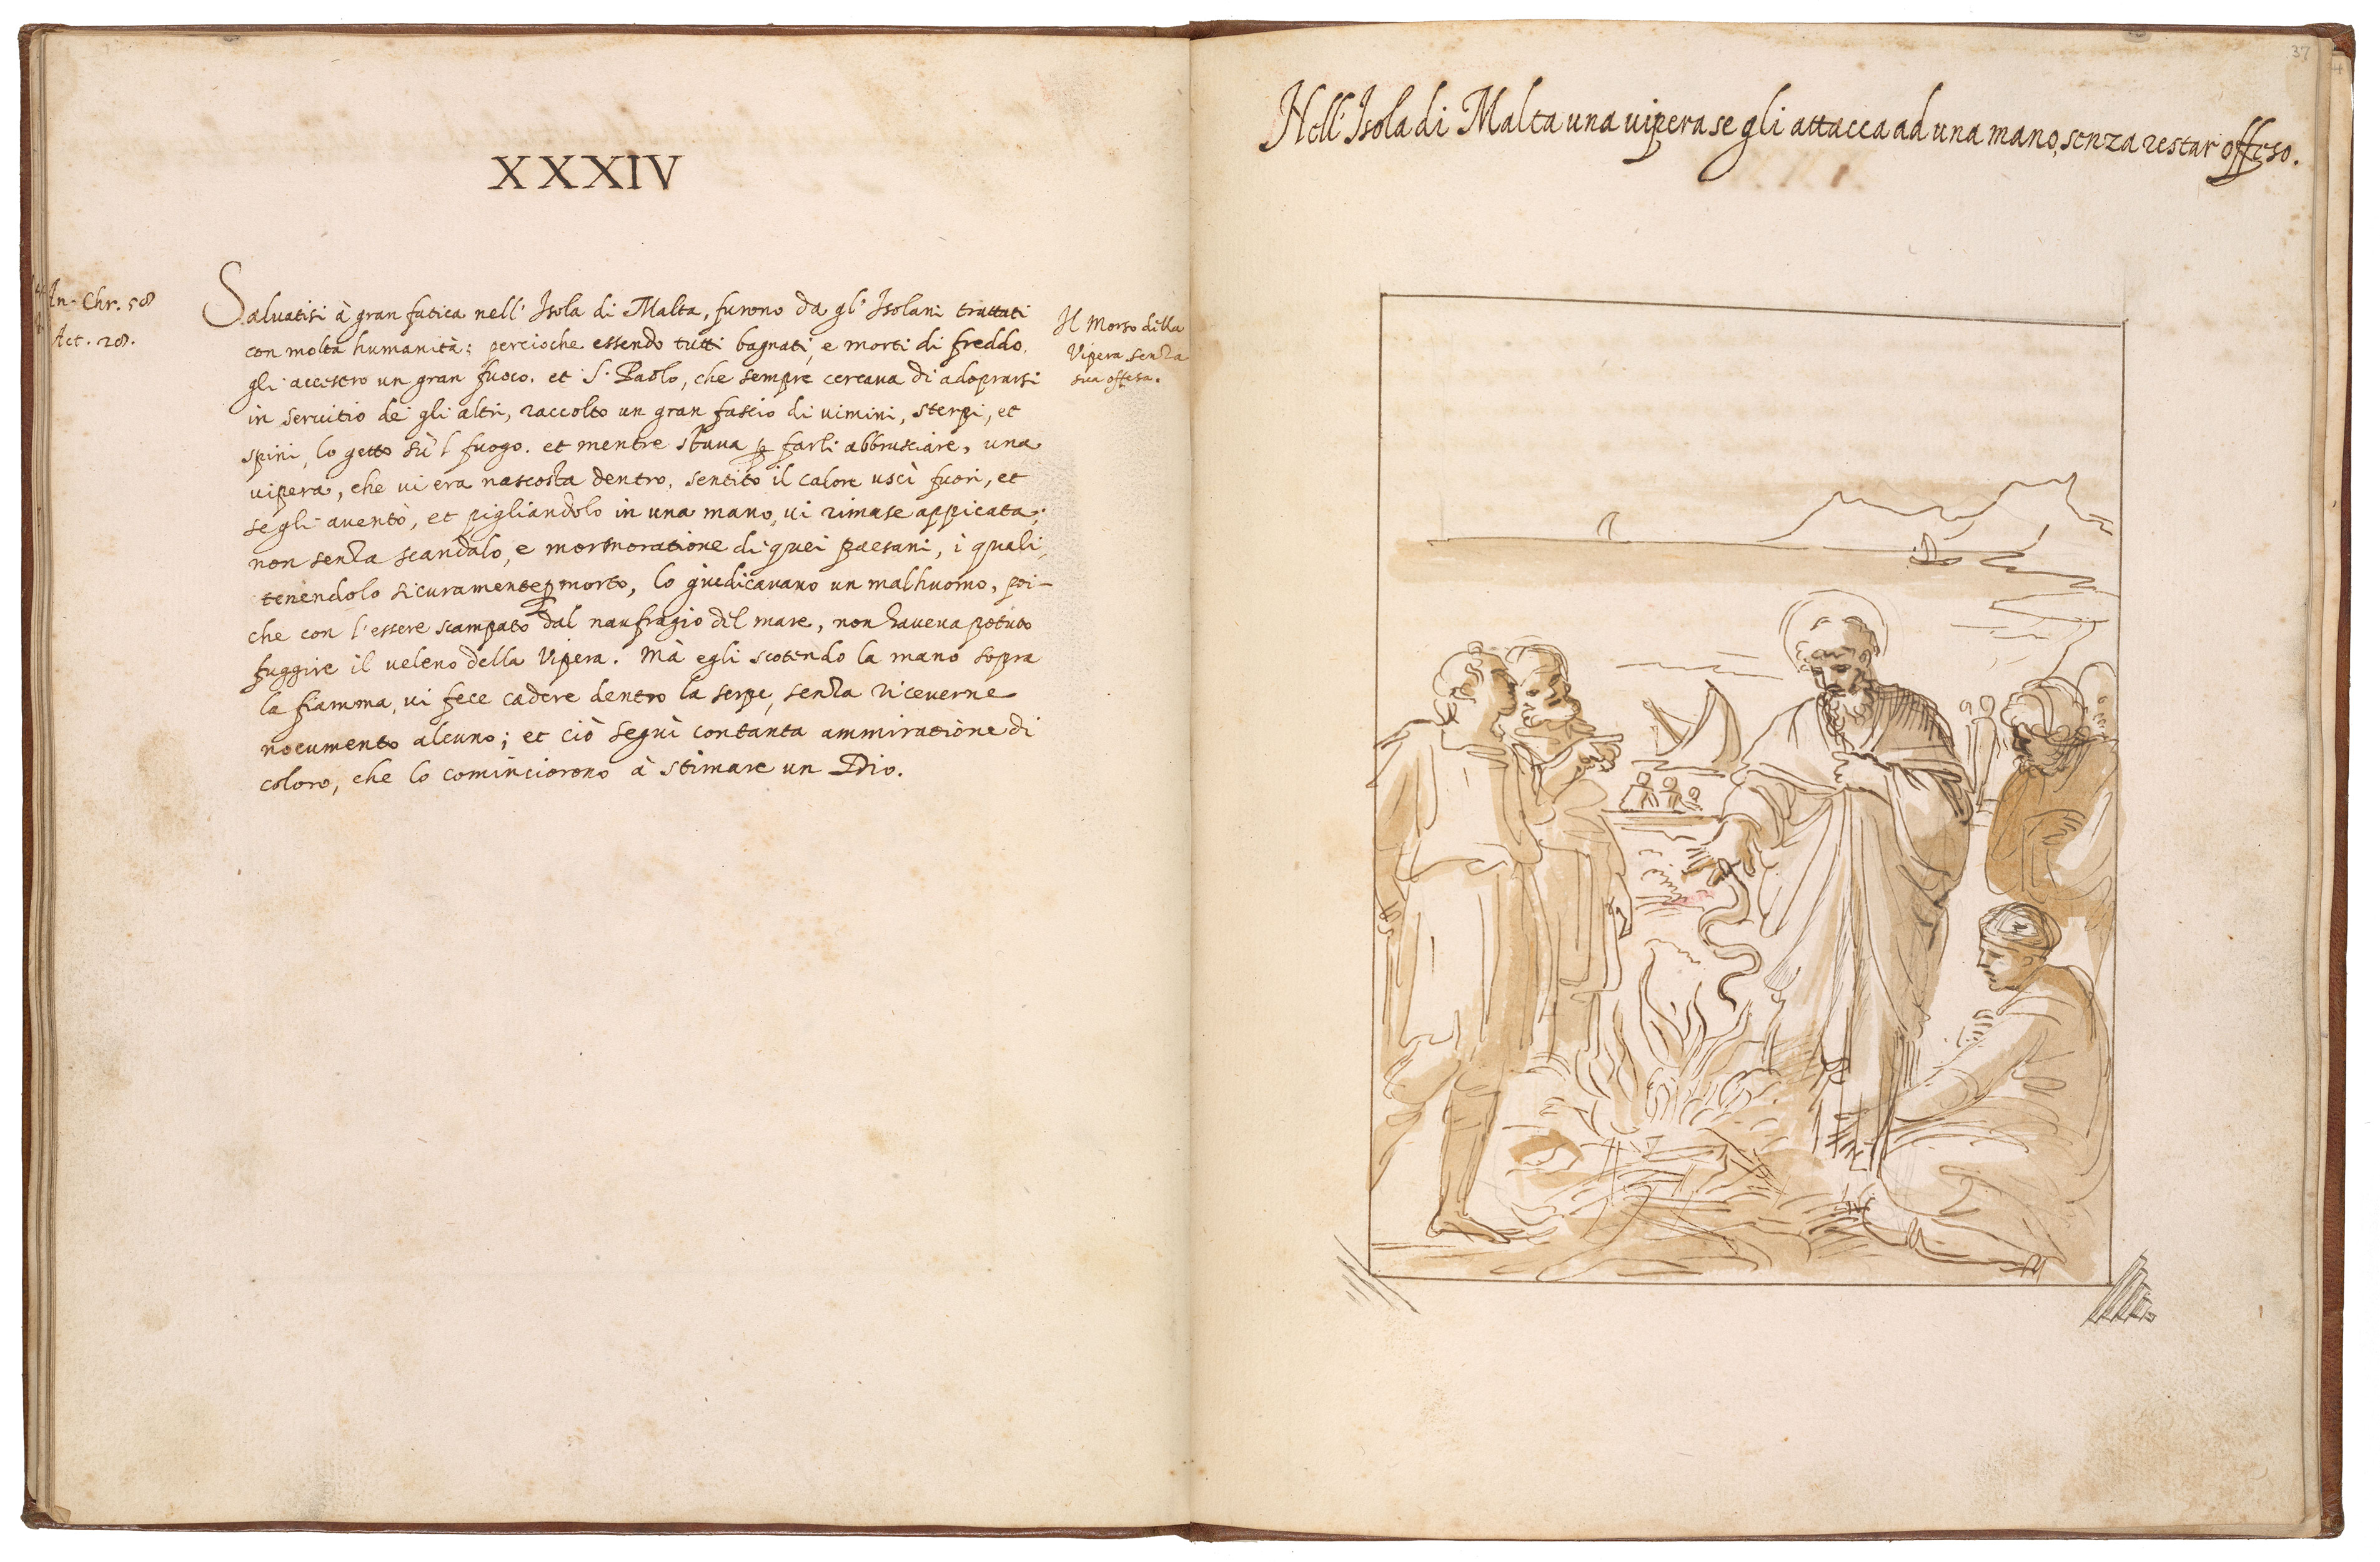 XXXIV
An. Chr. 58
Act. 28.
Salvatisi à gran fatica nell' Isola di Malta, furono da gl' Isolani trattati
con molta humanità; percioche essendo tutti bagnati, e morti di freddo,
gli accesero un gran fuoco. et S. Paolo, che sempre cercava di adoprarsi
in servitio de gli altri, raccolto un gran fascio di vimini, sterpi, et
spini, lo getto sù 'l fuogo. et mentre stava p farli abbrusciare, una
vipera, che vi era nascosta dentro, sentito il calore uscì fuori, et
se gli aventò, et pigliandolo in una mano, vi rimase appicata;
non senza scandalo, e mormoratione di quei paesani, i quali,
tenendolo sicuramente p morto, lo giudicavano un malhuomo, poi-
che con l'essere scampato dal naufragio del mare, non haveva potuto
fuggire il veleno della Vipera. Mà egli scotendo la mano sopra
la fiamma, vi fece cadere dentro la serpe, senza riceverne
nocumento alcuno; et ciò seguì con tanta ammiratione di
coloro, che lo cominciorono à stimare un Dio.
Il Morso della
Vipera senza
sua offesa.
37
Nell' Isola di Malta una vipera se gli attacca ad una mano, senza restar offeso.